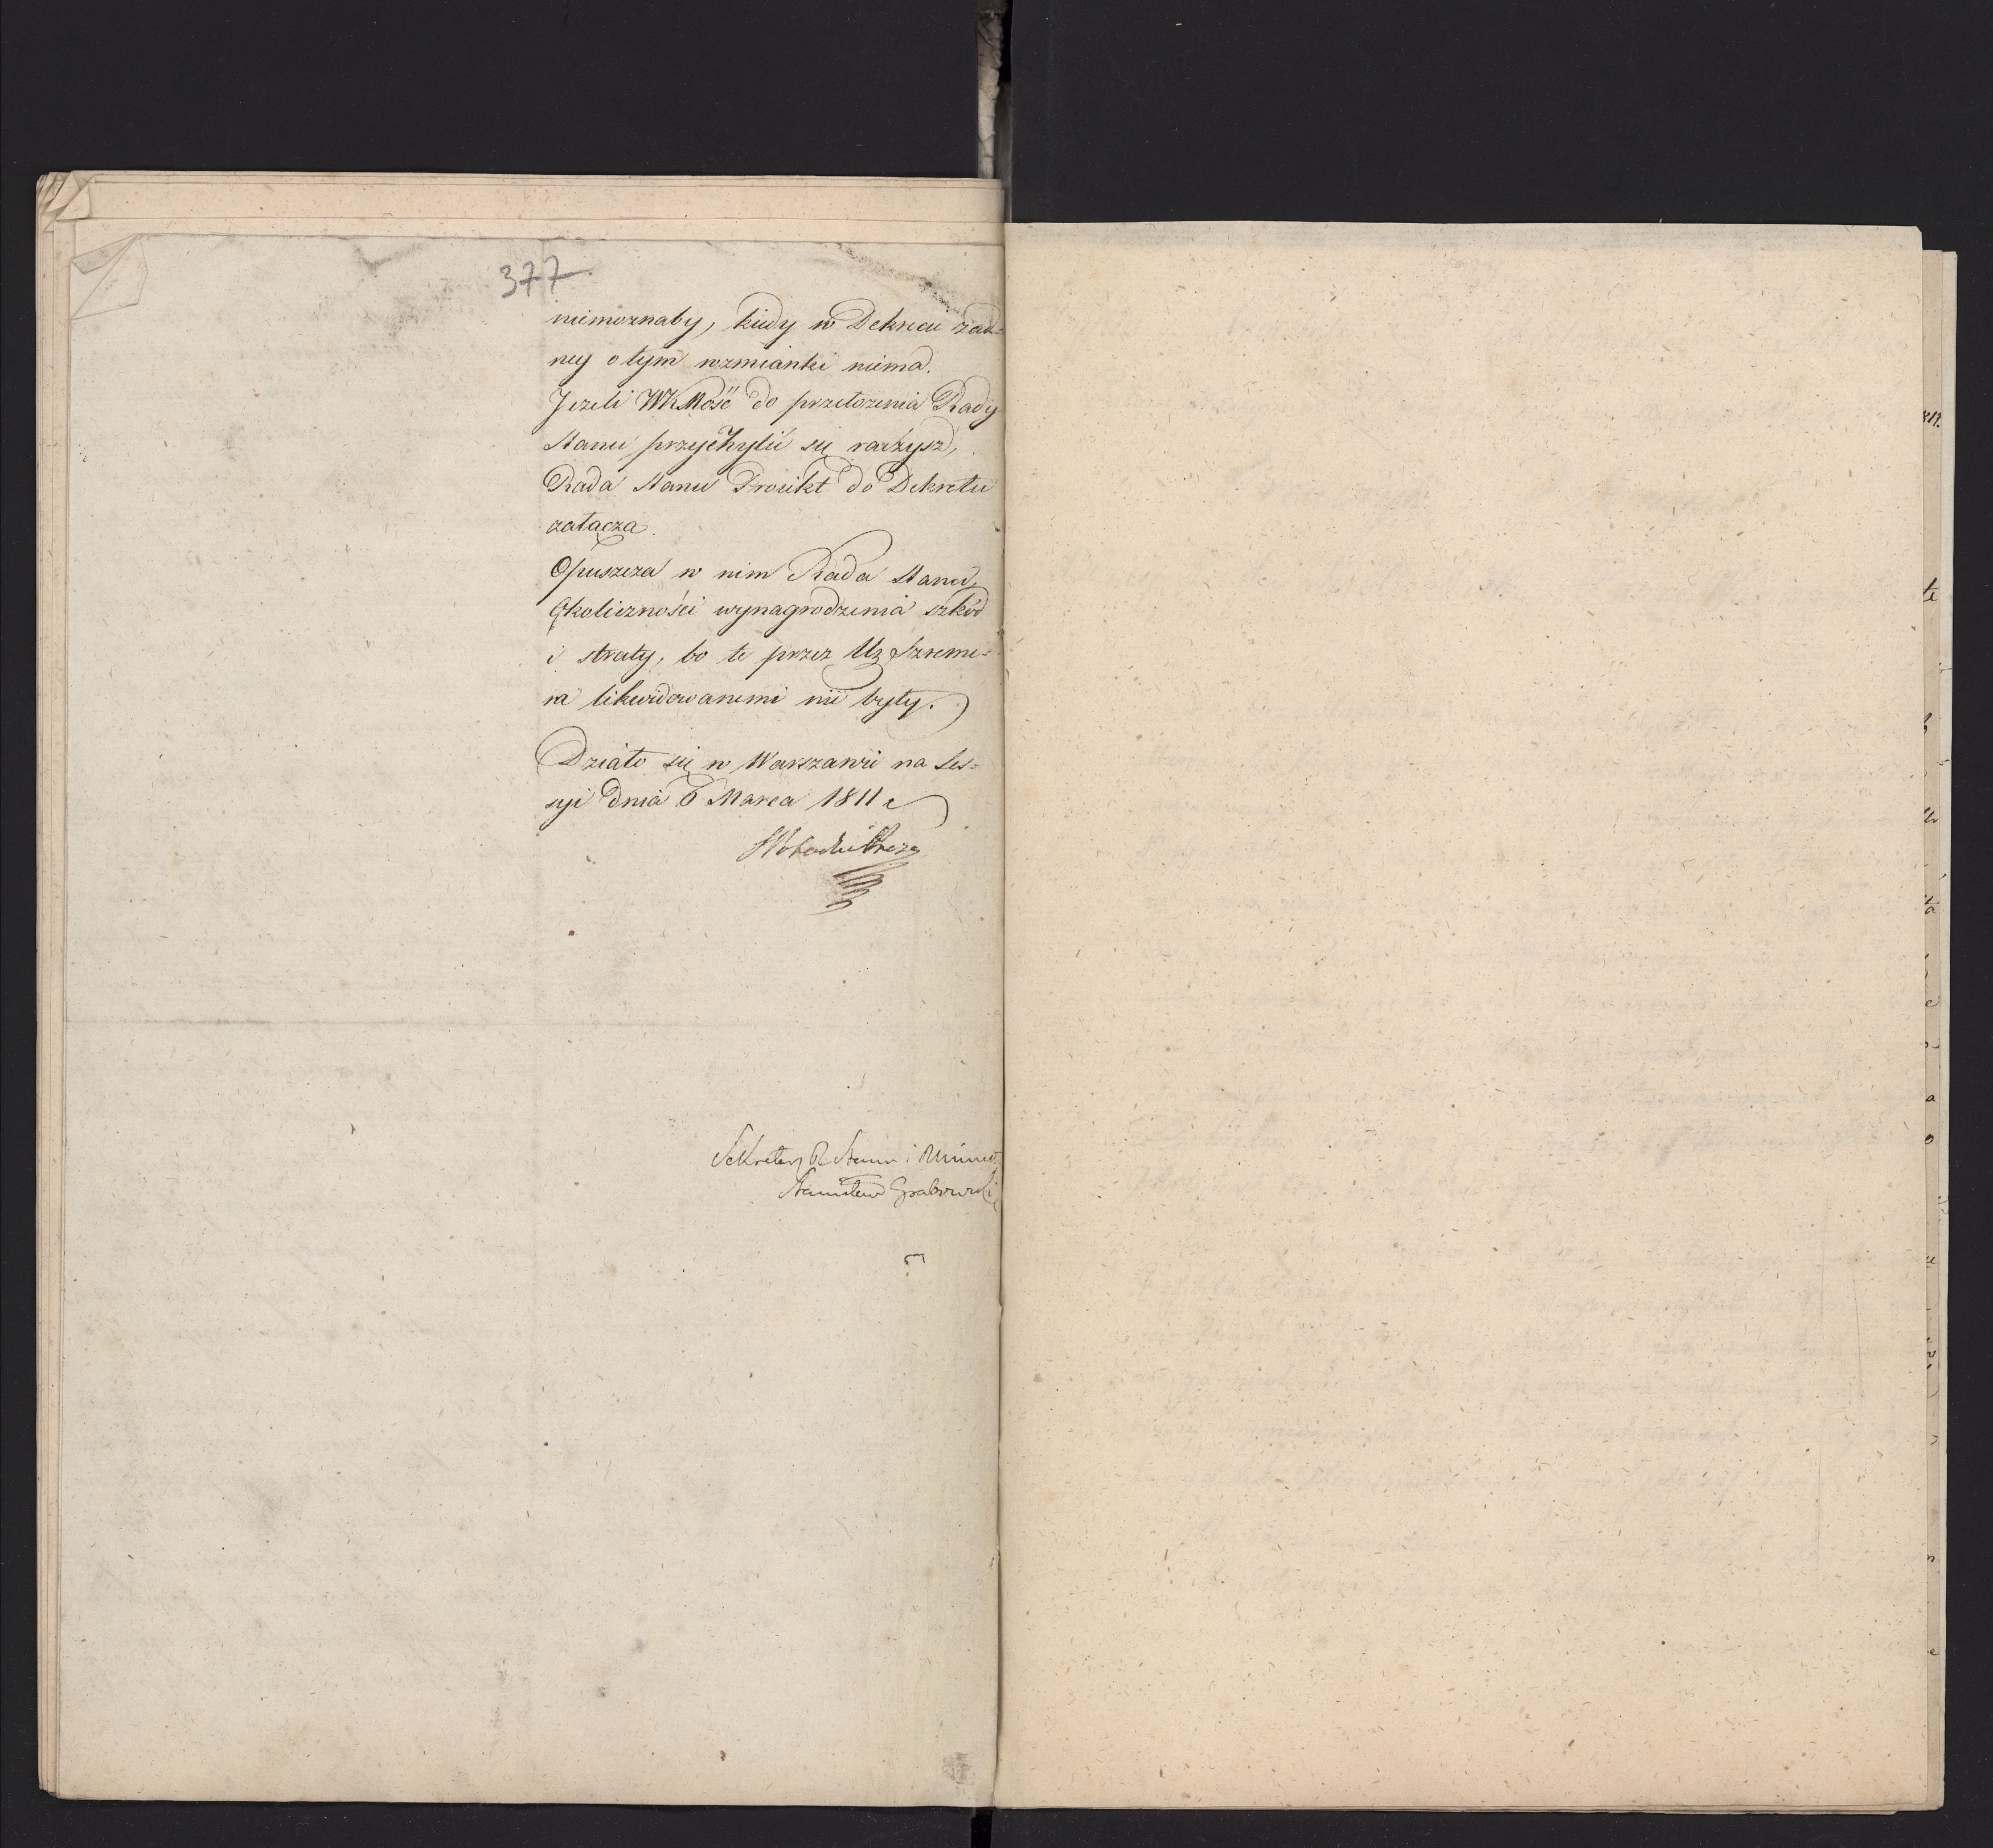 377
niemoznaby, kiedy w Dekrecie żad=
ney o tym wzmianki niema.
Jeżeli WKMość do przełożenia Rady
Stanu przychylić się raczysz,
Rada Stanu Proiekt do Dekretu
załącza.
Opuszcza w nim Rada Stanu,
Okoliczności wynagrodzenia szkód
i straty, bo te przez Ur Szreme=
ra likwidowanemi nie były.
Działo się w Warszawie na Ses=
syi dnia 6 Marca 1811 r
Sekretarz R Stanu i Minist
Stanisław Grabowski